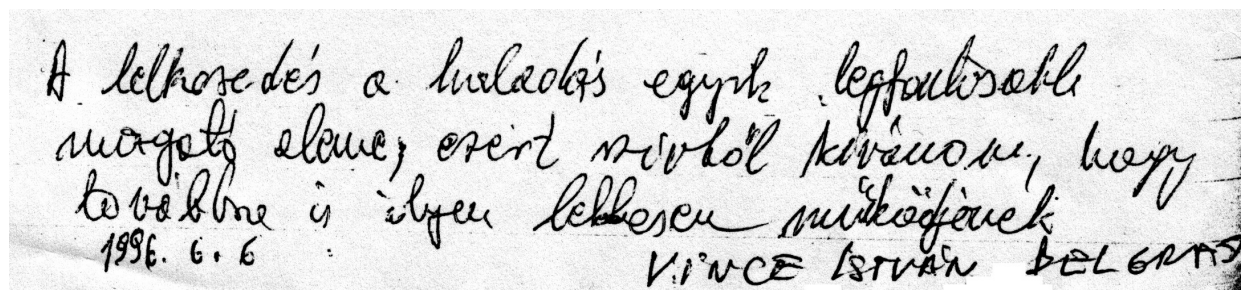 A lelkesedés a haladás egyik legfontosabb
mozgató eleme, ezért szívből kívánom, hogy
továbbra is ilyen lelkesen működjenek
1996. 6. 6
VINCE ISTVÁN BELGRÁD